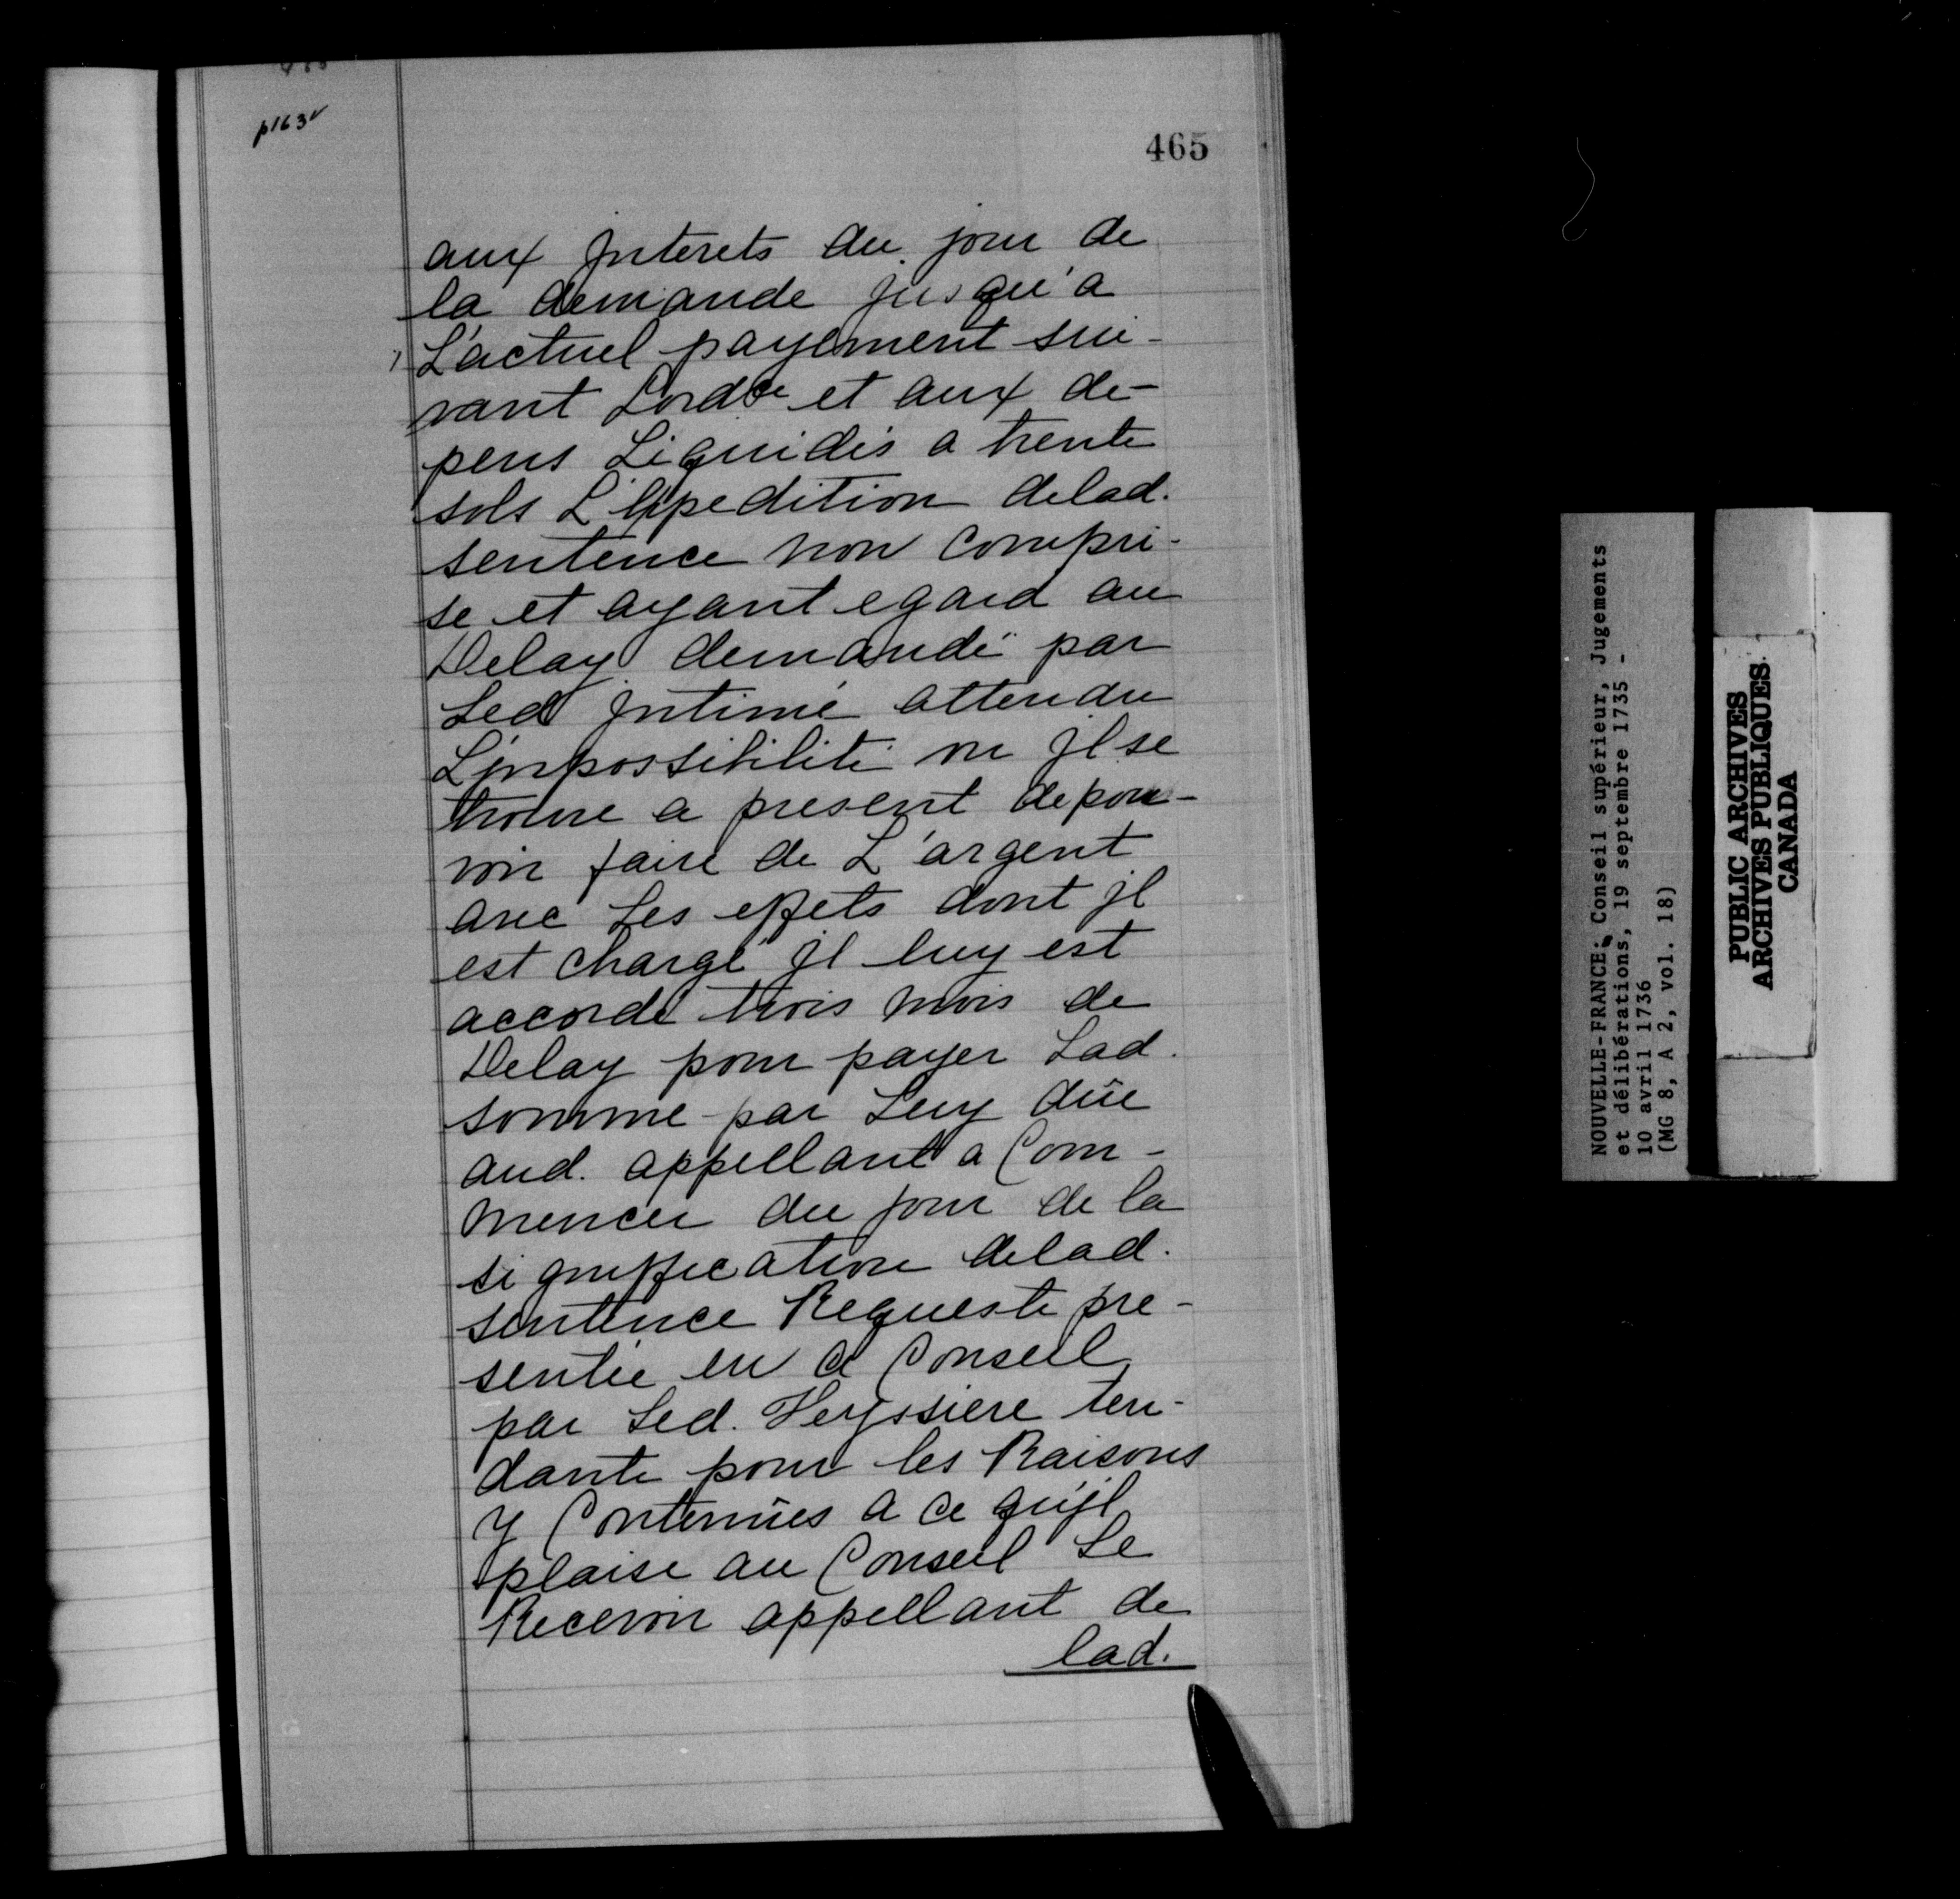 p163v
465
aux jnterets du jour de
la demande jusqu'a
L'actuel payement sui-
vant Lordce et aux de-
pens Liquidés a trente
sols L'Expedition delad.
sentence non compri-
se et ayant egard au
Delay demandé par
Led jntimé attendu
L'jmpossibilité ou jl se
trouve a present depou-
voir faire de L'argent
avec Les effets dont jl
est chargé jl luy est
accordé trois mois de
Delay pour payer Lad.
somme par Luy düe
aud. appellant a Com-
mencer du jour de la
signiffication delad.
sentence Requeste pre-
sentée en ce Conseil
par Led. Veyssiere ten-
dante pour les Raisons
y Contenües a ce qu'jl
plaise au Conseil Le
Recevoir appellant de
lad.
NOUVELLE-FRANCE: Conseil supérieur, Jugements
et délibérations, 19 septembre 1735 -
10 avril 1736
(MG 8, A 2, vol. 18)
PUBLIC ARCHIVES
ARCHIVES PUBLIQUES
CANADA